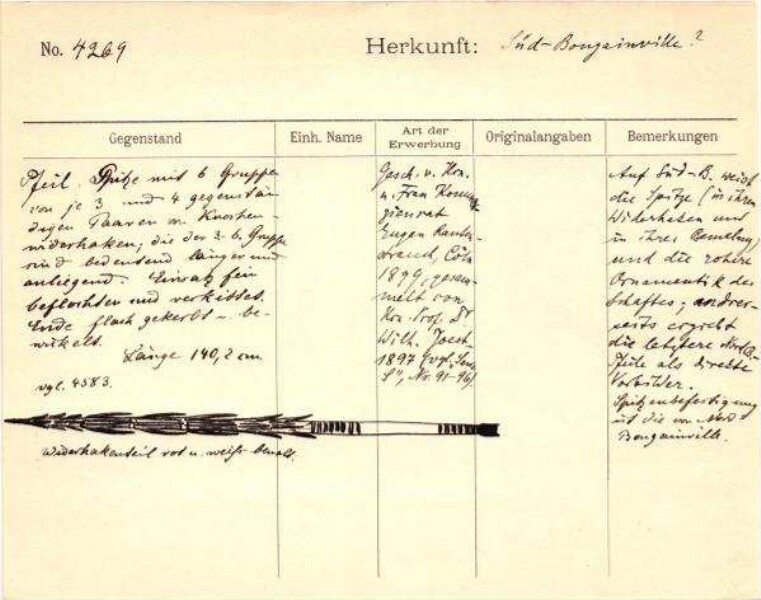 No. 4269
Herkunft: Süd-Bougainville?
Gegenstand
Einh. Name
Art der Erwerbung
Originalangaben
Bemerkungen
Pfeil. Spitze mit 6 Gruppen
von je 3 und 4 gegenstän
digen Paaren v. Knochen-
widerhaken, die der 3.-6. Gruppe
sind bedeutend länger und
anliegend. Einsatz fein
beflochten und verkittet.
Ende flach gekerbt u. be-
wickelt.
Länge 140,2 cm.
vgl. 4583.
Widerhakenteil rot u. weiß bemalt.
Gesch. v. Hrn.
u. Frau Kommer
zienrat
Eugen Rauten-
strauch, Cöln
1899, gesam-
melt von
Hrn. Prof. Dr
Wilh. Joest
1897 (vgl.
Nr. 91-96)
Auf Süd-B. weist
die Spitze (in ihren
Widerhaken und
in ihrer Bemalung)
und die rohere
Ornamentik des
Schaftes; andrer-
seits ergiebt
die letztere Nord-B-
Pfeile als direkte
Vorbilder.
Spitzenbefestigung
ist die von Nord
Bougainville.